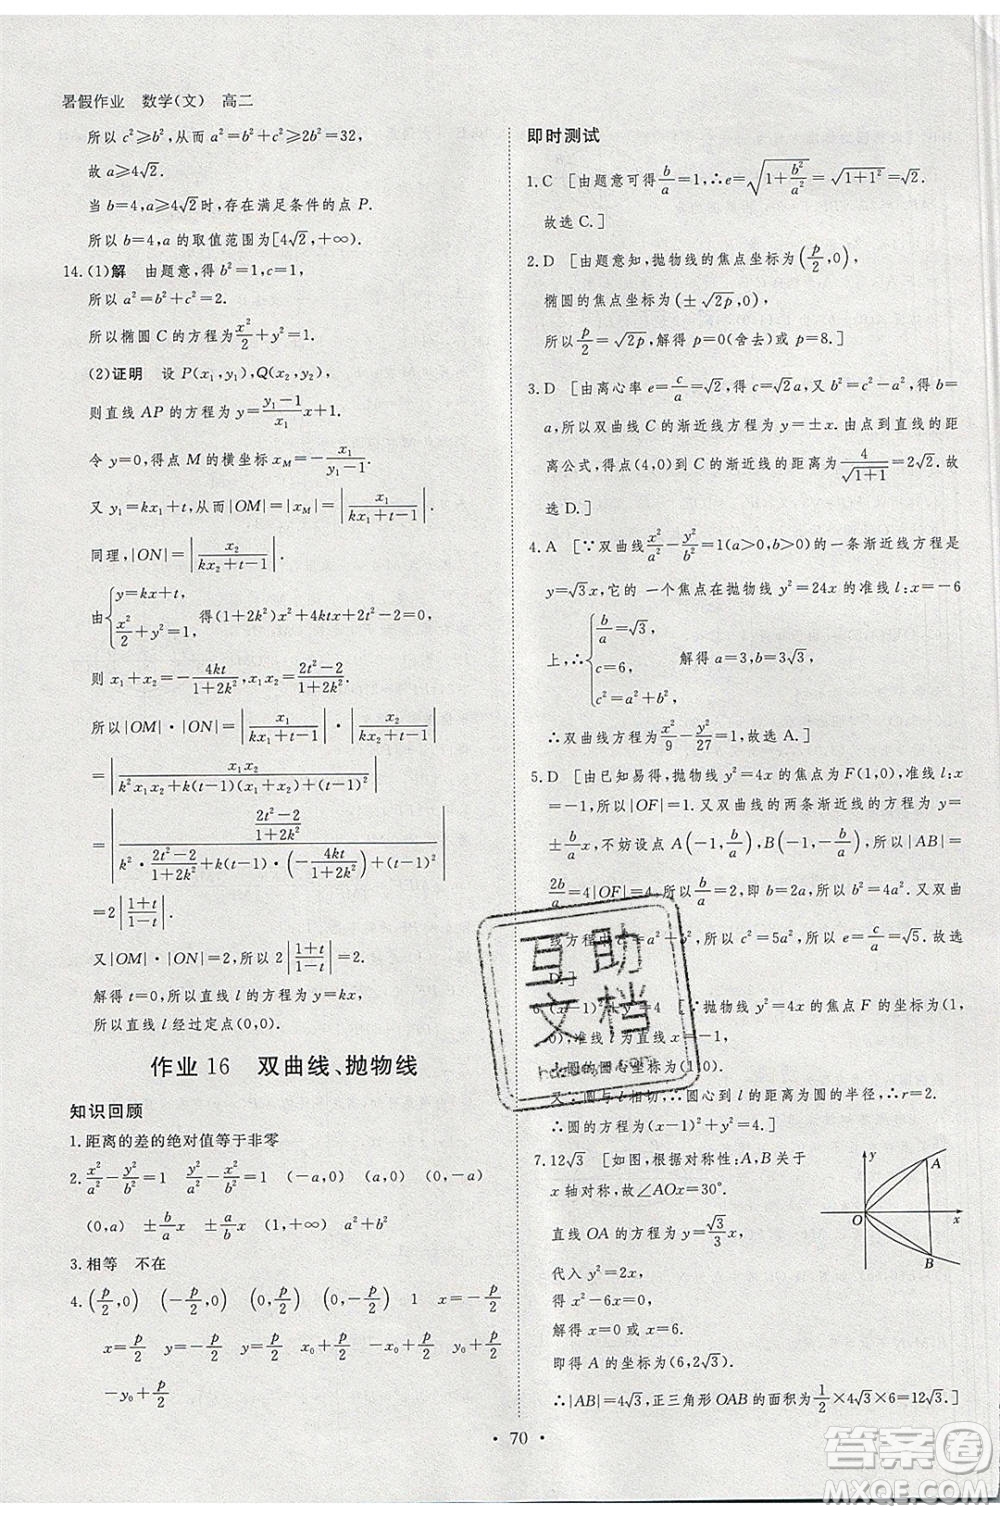 暑假作业　数学(文)　高二
所以 c²≥b²,从而 a²=b²+c²≥2b²=32,
故 a≥4√2.
当 b=4,a≥4√2时,存在满足条件的点 P.
所以 b=4,a 的取值范围为[4√2,+∞).
14.(1)解　由题意,得 b²=1,c=1.
所以 a²=b²+c²=2.
所以椭圆 C 的方程为x²/2+y²=1.
(2)证明　设 P(x₁,y₁),Q(x₂,y₂),
则直线 AP 的方程为 y=(y₁-1)/x₁ x+1.
令 y=0,得点 M 的横坐标 x_M=-x₁/(y₁-1).
又 y₁=kx₁+t,从而|OM|=|x_M|=|x₁/(kx₁+t-1)|.
同理,|ON|=|x₂/(kx₂+t-1)|.
由{y=kx+t, x²/2+y²=1 得(1+2k²)x²+4ktx+2t²-2=0
则 x₁+x₂=-4kt/(1+2k²),x₁x₂=(2t²-2)/(1+2k²).
所以|OM|·|ON|=|x₁/(kx₁+t-1)|·|x₂/(kx₂+t-1)|
=|x₁x₂/(k²x₁x₂+k(t-1)(x₁+x₂)+(t-1)²)|
=|((2t²-2)/(1+2k²))/(k²·(2t²-2)/(1+2k²)+k(t-1)·(-4kt/(1+2k²))+(t-1)²)|
=2|(1+t)/(1-t)|
又|OM|·|ON|=2,所以2|(1+t)/(1-t)|=2.
解得 t=0,所以直线 l 的方程为 y=kx,
所以直线 l 经过定点(0,0).
作业 16　双曲线、抛物线
知识回顾
1.距离的差的绝对值等于非零
2.x²/a²-y²/b²=1　y²/a²-x²/b²=1　(-a,0)　(a,0)　(0,-a)
(0,a)　±b/a　±a/b　(1,+∞)　a²+b²
3.相等　不在
4.(p/2,0)　(-p/2,0)　(0,p/2)　(0,-p/2)　1　x=-p/2
x=p/2　y=-p/2　y=p/2　x₀+p/2　-x₀+p/2　y₀+p/2
-y₀+p/2
即时测试
1.C　[由题意可得b/a=1,∴e=√(1+b²/a²)=√(1+1²)=√2.
故选 C.]
2.D　[由题意知,抛物线的焦点坐标为(p/2,0),
椭圆的焦点坐标为(±√(2p),0),
所以p/2=√(2p),解得 p=0(舍去)或 p=8.]
3.D　[由离心率 e=c/a=√2,得 c=√2a,又 b²=c²-a²,得 b=
a,所以双曲线 C 的渐近线方程为 y=±x.由点到直线的距
离公式,得点(4,0)到 C 的渐近线的距离为4/√(1+1)=2√2.故
选 D.]
4.A　[∵双曲线x²/a²-y²/b²=1(a>0,b>0)的一条渐近线方程是
y=√3x,它的 一个焦点在抛物线 y²=24x 的准线 l:x=-6
上,∴{b/a=√3, c=6, c²=a²+b²,　解得 a=3,b=3√3,
∴双曲线方程为x²/9-y²/27=1,故选 A.]
5.D　[由已知易得,抛物线 y²=4x 的焦点为 F(1,0),准线 l:x
=-1,所以|OF|=1.又双曲线的两条渐近线的方程为 y=
±b/a x,不妨设点 A(-1,b/a),B(-1,-b/a),所以|AB|=
2b/a=4|OF|=4,所以b/a=2,即 b=2a,所以 b²=4a².又双曲
线方程中 c²=a²+b²,所以 c²=5a²,所以 e=c/a=√5.故选
D.]
6.(x-1)²+y²=4　[∵抛物线 y²=4x 的焦点 F 的坐标为
(1,0),准线 l 为直线 x=-1,
∴圆的圆心坐标为(1,0).
又∵圆与 l 相切,∴圆心到 l 的距离为圆的半径,∴r=2.
∴圆的方程为(x-1)²+y²=4.]
7.12√3　[如图,根据对称性:A,B 关于
x 轴对称,故∠AOx=30°.
直线 OA 的方程为 y=√3/3 x,
代入 y²=2x,
得 x²-6x=0,
解得 x=0或 x=6.
即得 A 的坐标为(6,2√3).
∴|AB|=4√3,正三角形 OAB 的面积为1/2×4√3×6=12√3.]
y
A
O
x
B
· 70 ·
互助
文档
答案卷
MXQE.COM